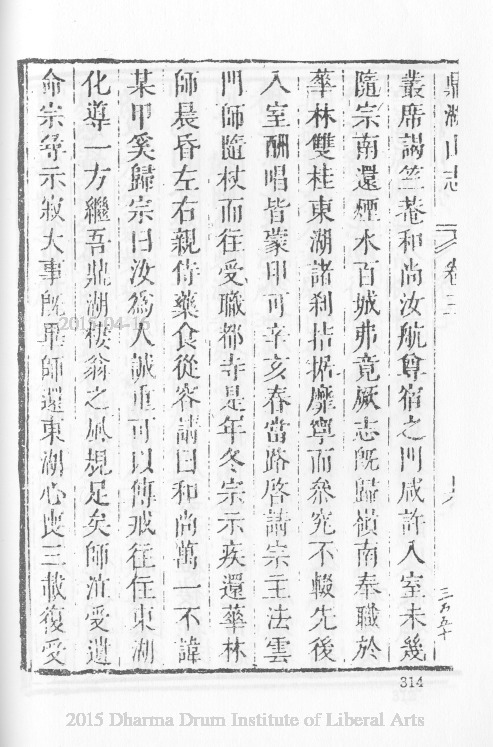 鼎湖山志 卷三
叢席謁竺菴和尚汝航尊宿之門咸許入室未幾
隨宗南還煙水百城弗竟厥志旣歸嶺南奉職於
華林雙桂東湖諸刹拮据靡寧而參究不輟先後
入室酬唱皆蒙印可辛亥春當路啓請宗主法雲
門師隨杖而往受職都寺是年冬宗示疾還華林
師晨昏左右親侍藥食從容請曰和尚萬一不諱
某甲奚歸宗曰汝爲人誠重可以傳戒往住東湖
化導一方繼吾鼎湖棲翁之風規足矣師泣受遺
命宗尋示寂大事旣畢師還東湖心喪三載復受
三百五十
314
2015-04-15
2015 Dharma Drum Institute of Liberal Arts